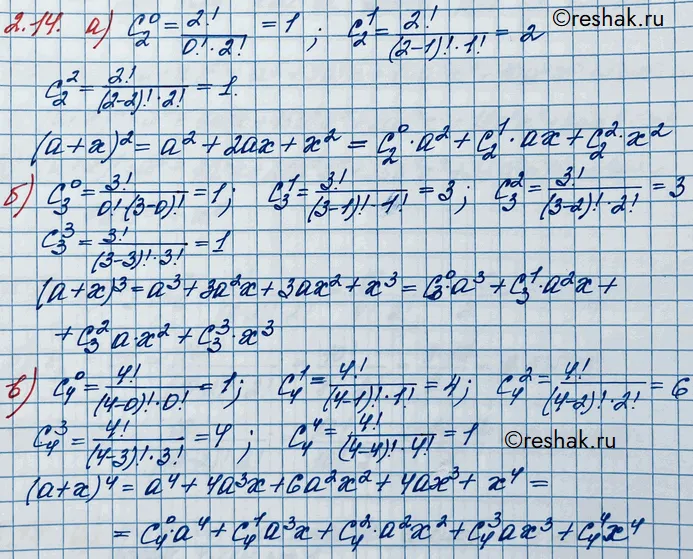 ©reshak.ru
2.14. а) C₂⁰ = 2!/(0!·2!) = 1 ; C₂¹ = 2!/((2-1)!·1!) = 2
C₂² = 2!/((2-2)!·2!) = 1.
(a+x)² = a² + 2ax + x² = C₂⁰·a² + C₂¹·ax + C₂²·x²
б) C₃⁰ = 3!/(0!·(3-0)!) = 1; C₃¹ = 3!/((3-1)!·1!) = 3; C₃² = 3!/((3-2)!·2!) = 3
C₃³ = 3!/((3-3)!·3!) = 1
(a+x)³ = a³ + 3a²x + 3ax² + x³ = C₃⁰·a³ + C₃¹·a²x +
+ C₃² a·x² + C₃³·x³
в) C₄⁰ = 4!/((4-0)!·0!) = 1; C₄¹ = 4!/((4-1)!·1!) = 4; C₄² = 4!/((4-2)!·2!) = 6
C₄³ = 4!/((4-3)!·3!) = 4 ; C₄⁴ = 4!/((4-4)!·4!) = 1
©reshak.ru
(a+x)⁴ = a⁴ + 4a³x + 6a²x² + 4ax³ + x⁴ =
= C₄⁰·a⁴ + C₄¹a³x + C₄²·a²x² + C₄³ax³ + C₄⁴x⁴